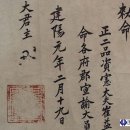 勅命
正二品資憲大夫崔益
命各府郡宣諭大員
建陽元年二月十九日
大君主